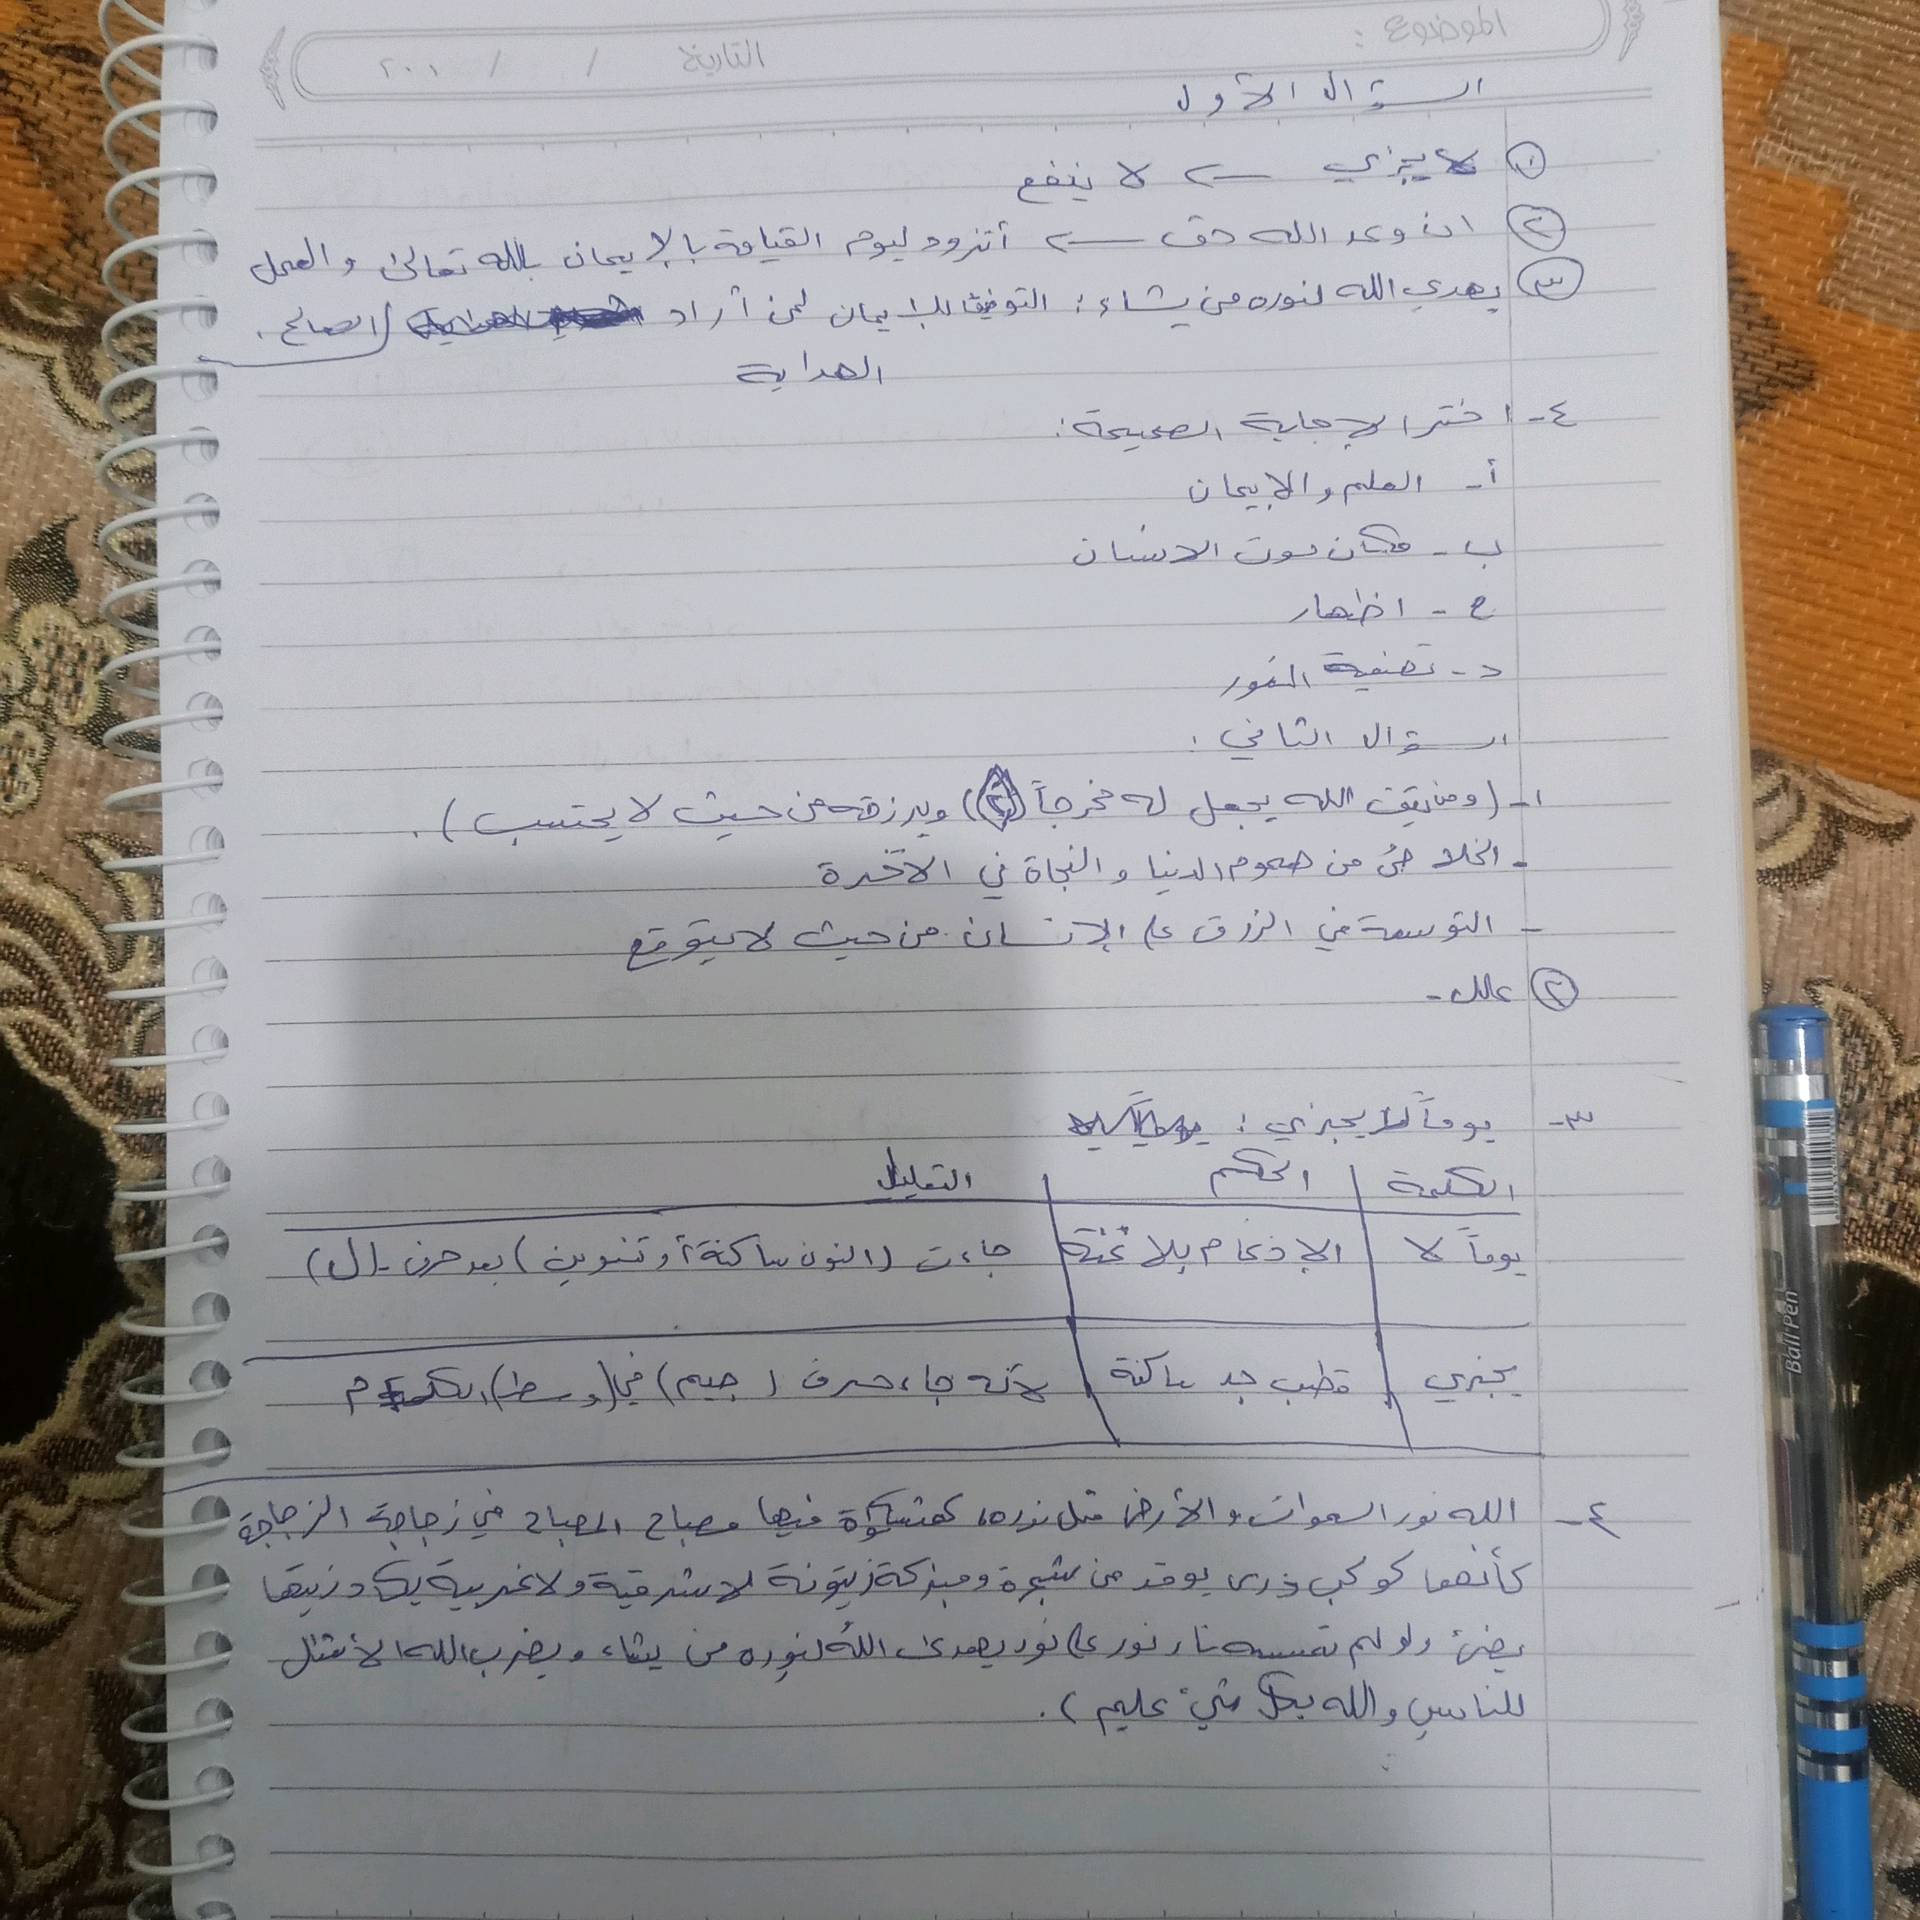 الموضوع :
التاريخ / / ٢٠٠١
السؤال الأول
١ لا يجزي ← لا ينفع
٢ ان وعد الله حق ← أتزود ليوم القيامة بالإيمان بالله تعالى والعمل الصالح .
٣ يهدي الله لنوره من يشاء : التوفيق للإيمان لمن أراد
الهداية
٤- اختر الإجابة الصحيحة :
أ- العلم والإيمان
ب- مكان موت الانسان
ج - اظهار
د- تصفية
السؤال الثاني :
١- (ومن يتق الله يجعل له مخرجاً (٢) ويرزقه من حيث لا يحتسب ) .
- الخلاص من هموم الدنيا والنجاة في الآخرة
- التوسعة في الرزق على الإنسان من حيث لا يتوقع
٢ علل -
٣- يوماً لا يجزي :
الكلمة الحكم التعليل
يوماً لا الإدغام بلا غنة جاءت (النون ساكنة أو تنوين ) بعد حرف (ل)
يجزي قطب جد ساكنة لأنه جاء حرف (جيم) في (وسط) الكلام
٤- الله نور السموات والأرض مثل نوره كمشكوة فيها مصباح المصباح في زجاجة الزجاجة
كأنها كوكب درى يوقد من شجرة مبركة زيتونة لا شرقية ولا غربية يكاد زيتها
يضئ ولو لم تمسسه نار نور على نور يهدى الله لنوره من يشاء ويضرب الله الأمثل
للناس والله بكل شيء عليم ) .
Ball Pen